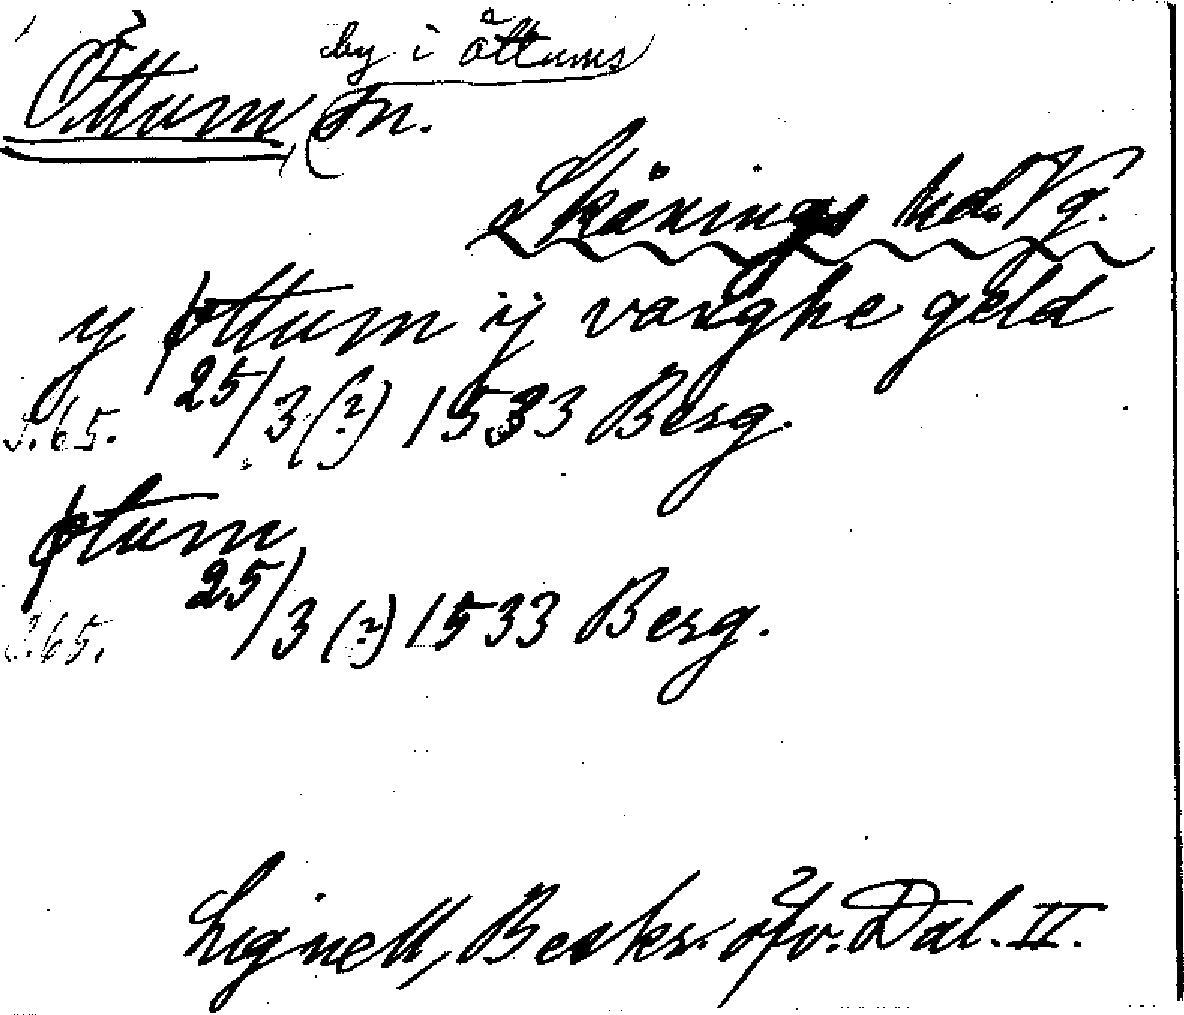 by i Öttums
Öttum, sn.
Skånings hd. Vg.
y øttum ij vanghe geld
S.65. 25/3 (?) 1533 Berg.
øtum
S.65. 25/3 (?) 1533 Berg.
Lignell, Beskr. öfv. Dal. II.